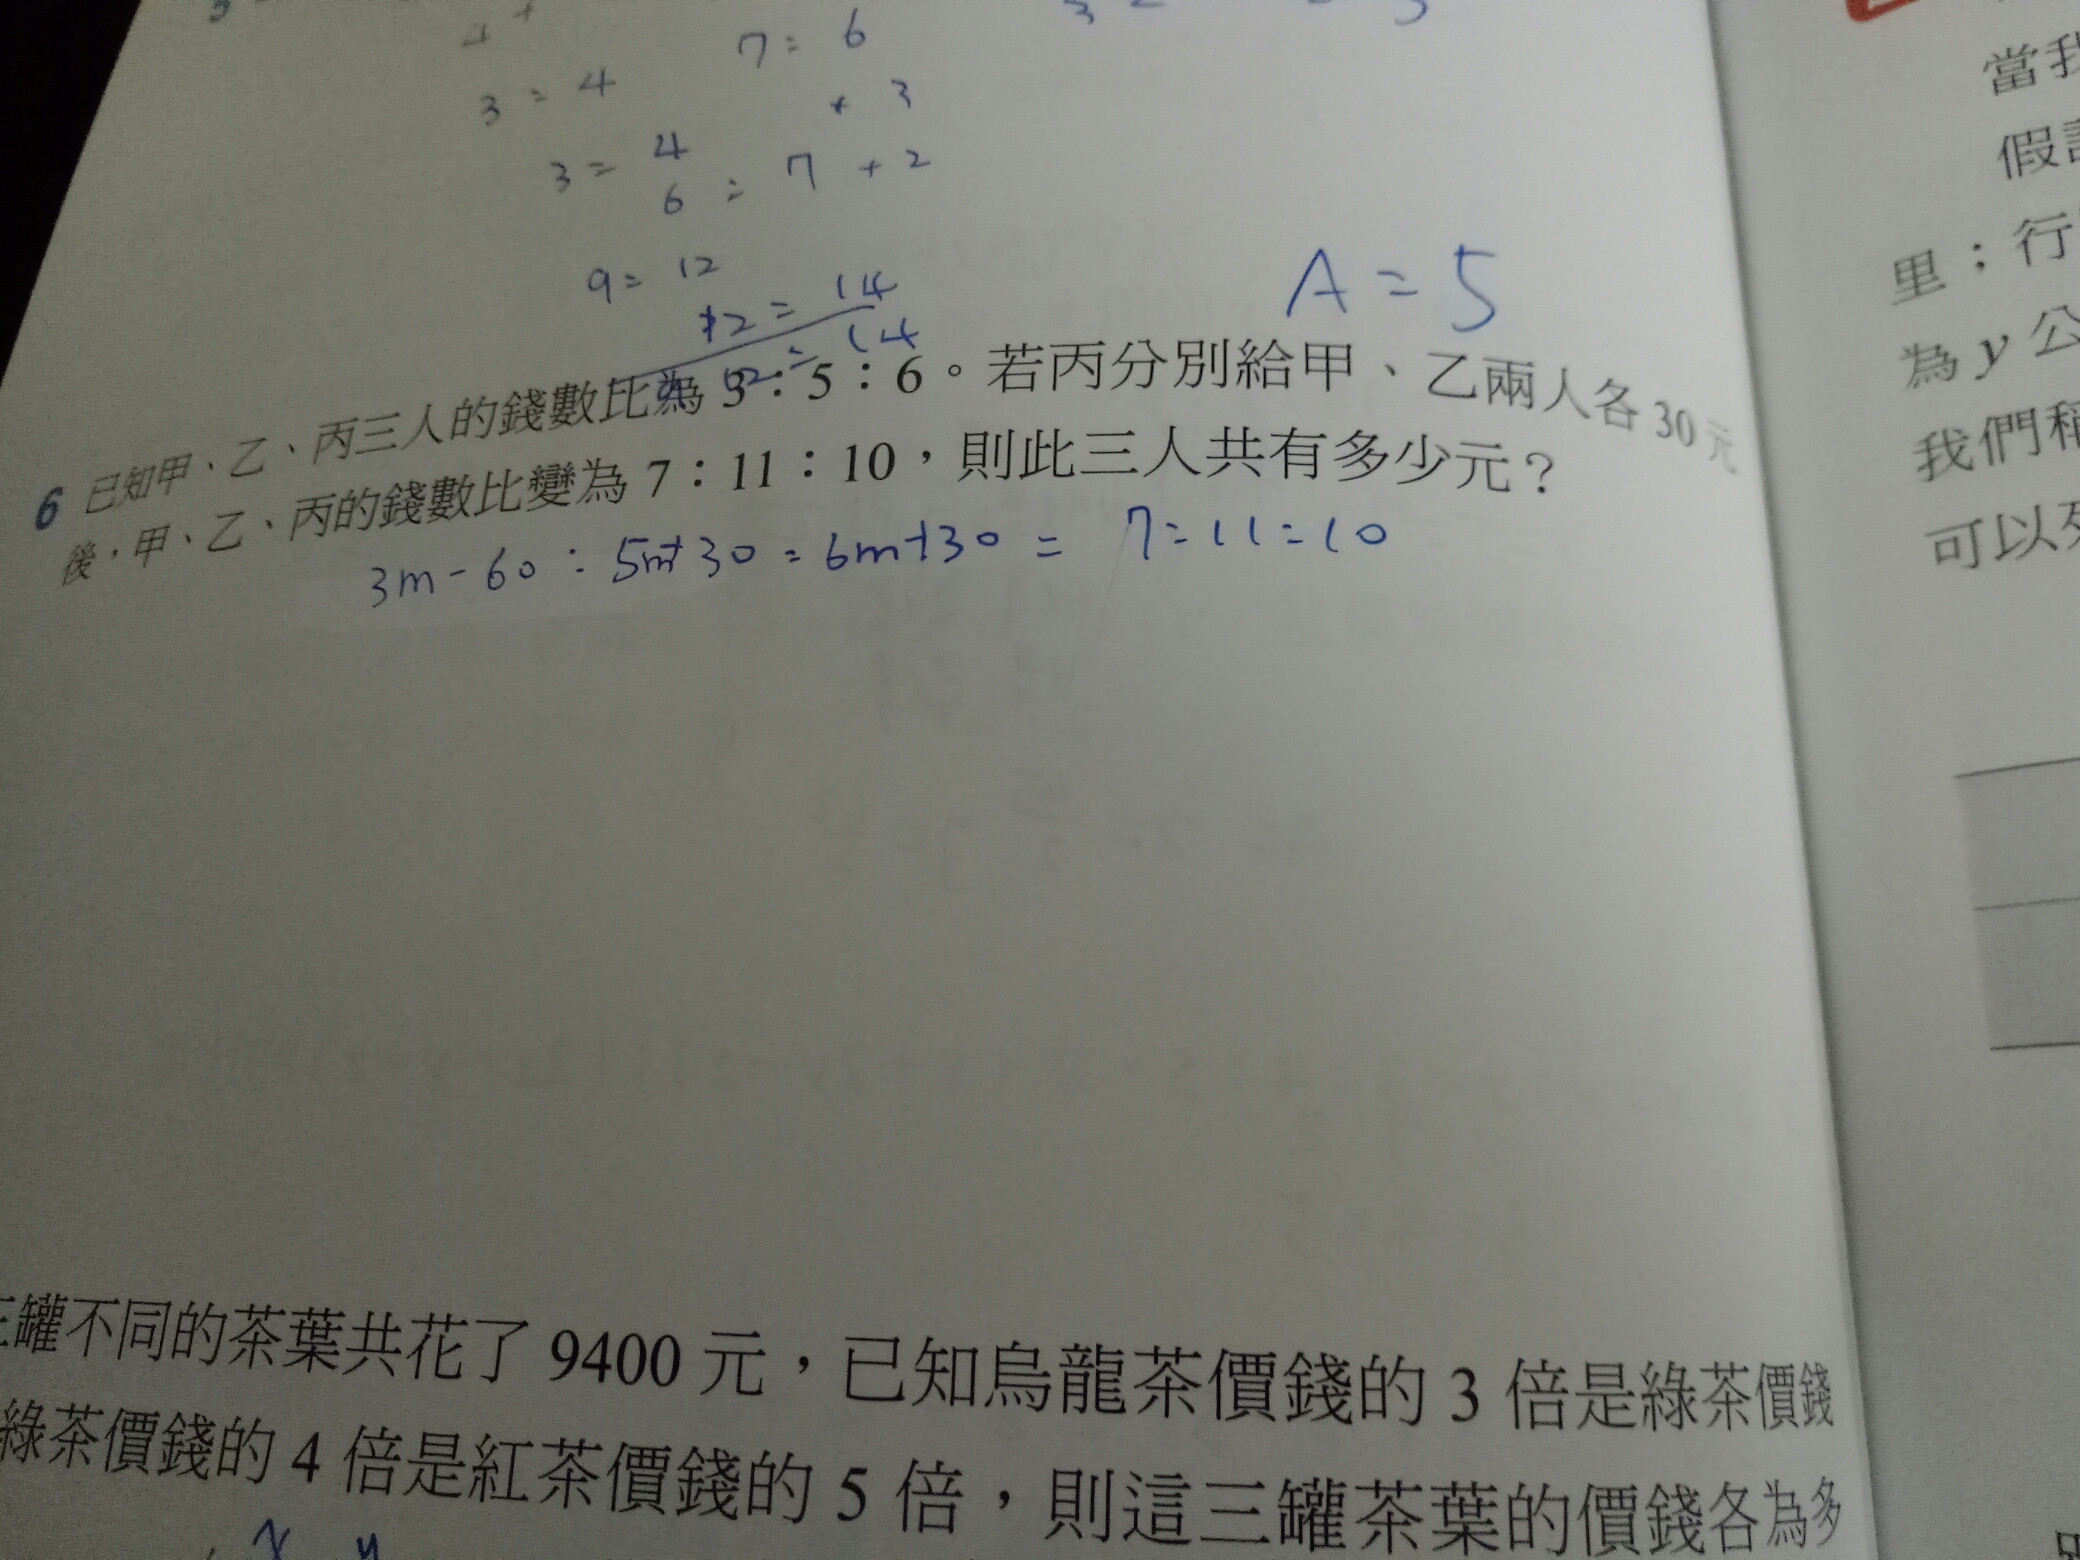 7 : 6
3 : 4
+ 3
3 = 4
6 : 7 + 2
9 = 12
12 = 14
A = 5
6 已知甲、乙、丙三人的錢數比為 3：5：6。若丙分別給甲、乙兩人各 30 元
後，甲、乙、丙的錢數比變為 7：11：10，則此三人共有多少元？
3m - 60 : 5m+30 = 6m+30 = 7=11=10
罐不同的茶葉共花了 9400 元，已知烏龍茶價錢的 3 倍是綠茶價錢
綠茶價錢的 4 倍是紅茶價錢的 5 倍，則這三罐茶葉的價錢各為多
x y
當我
里；行
為 y 公
我們稱
可以列